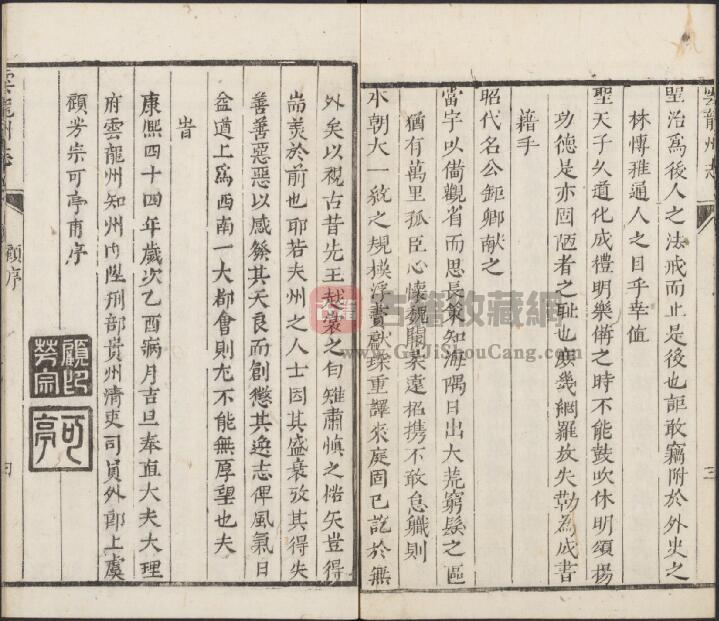 雲龍州志
聖治爲後人之法戒而止是後也詎敢竊附於外史之
林傳雅通人之目乎幸值
聖天子久道化成禮明樂備之時不能鼓吹休明頌揚
功德是亦固陋者之耻也庶幾網羅放失勒爲成書
藉手
昭代名公鉅卿獻之
當宁以備觀省而思長策知海隅日出大荒窮髮之區
猶有萬里孤臣心懷魏闕柔遠招携不敢怠職則
本朝大一統之規模浮賣獻琛重譯來庭固已訖於無
三
外矣以視古昔先王越裳之白雉肅慎之楛矢豈得
耑羨於前也耶若夫州之人士因其盛衰攷其得失
善善惡惡以感發其天良而創懲其逸志俾風氣日
益道上爲西南一大都會則尤不能無厚望也夫
旹
康熙四十四年歲次乙酉病月吉旦奉直大夫大理
府雲龍州知州內陞刑部貴州清吏司員外郎上虞
顧芳宗可亭甫序
顧印芳宗
可亭
雲龍州志
顧序
四
古籍
古籍收藏網
www.GuJiShouCang.com